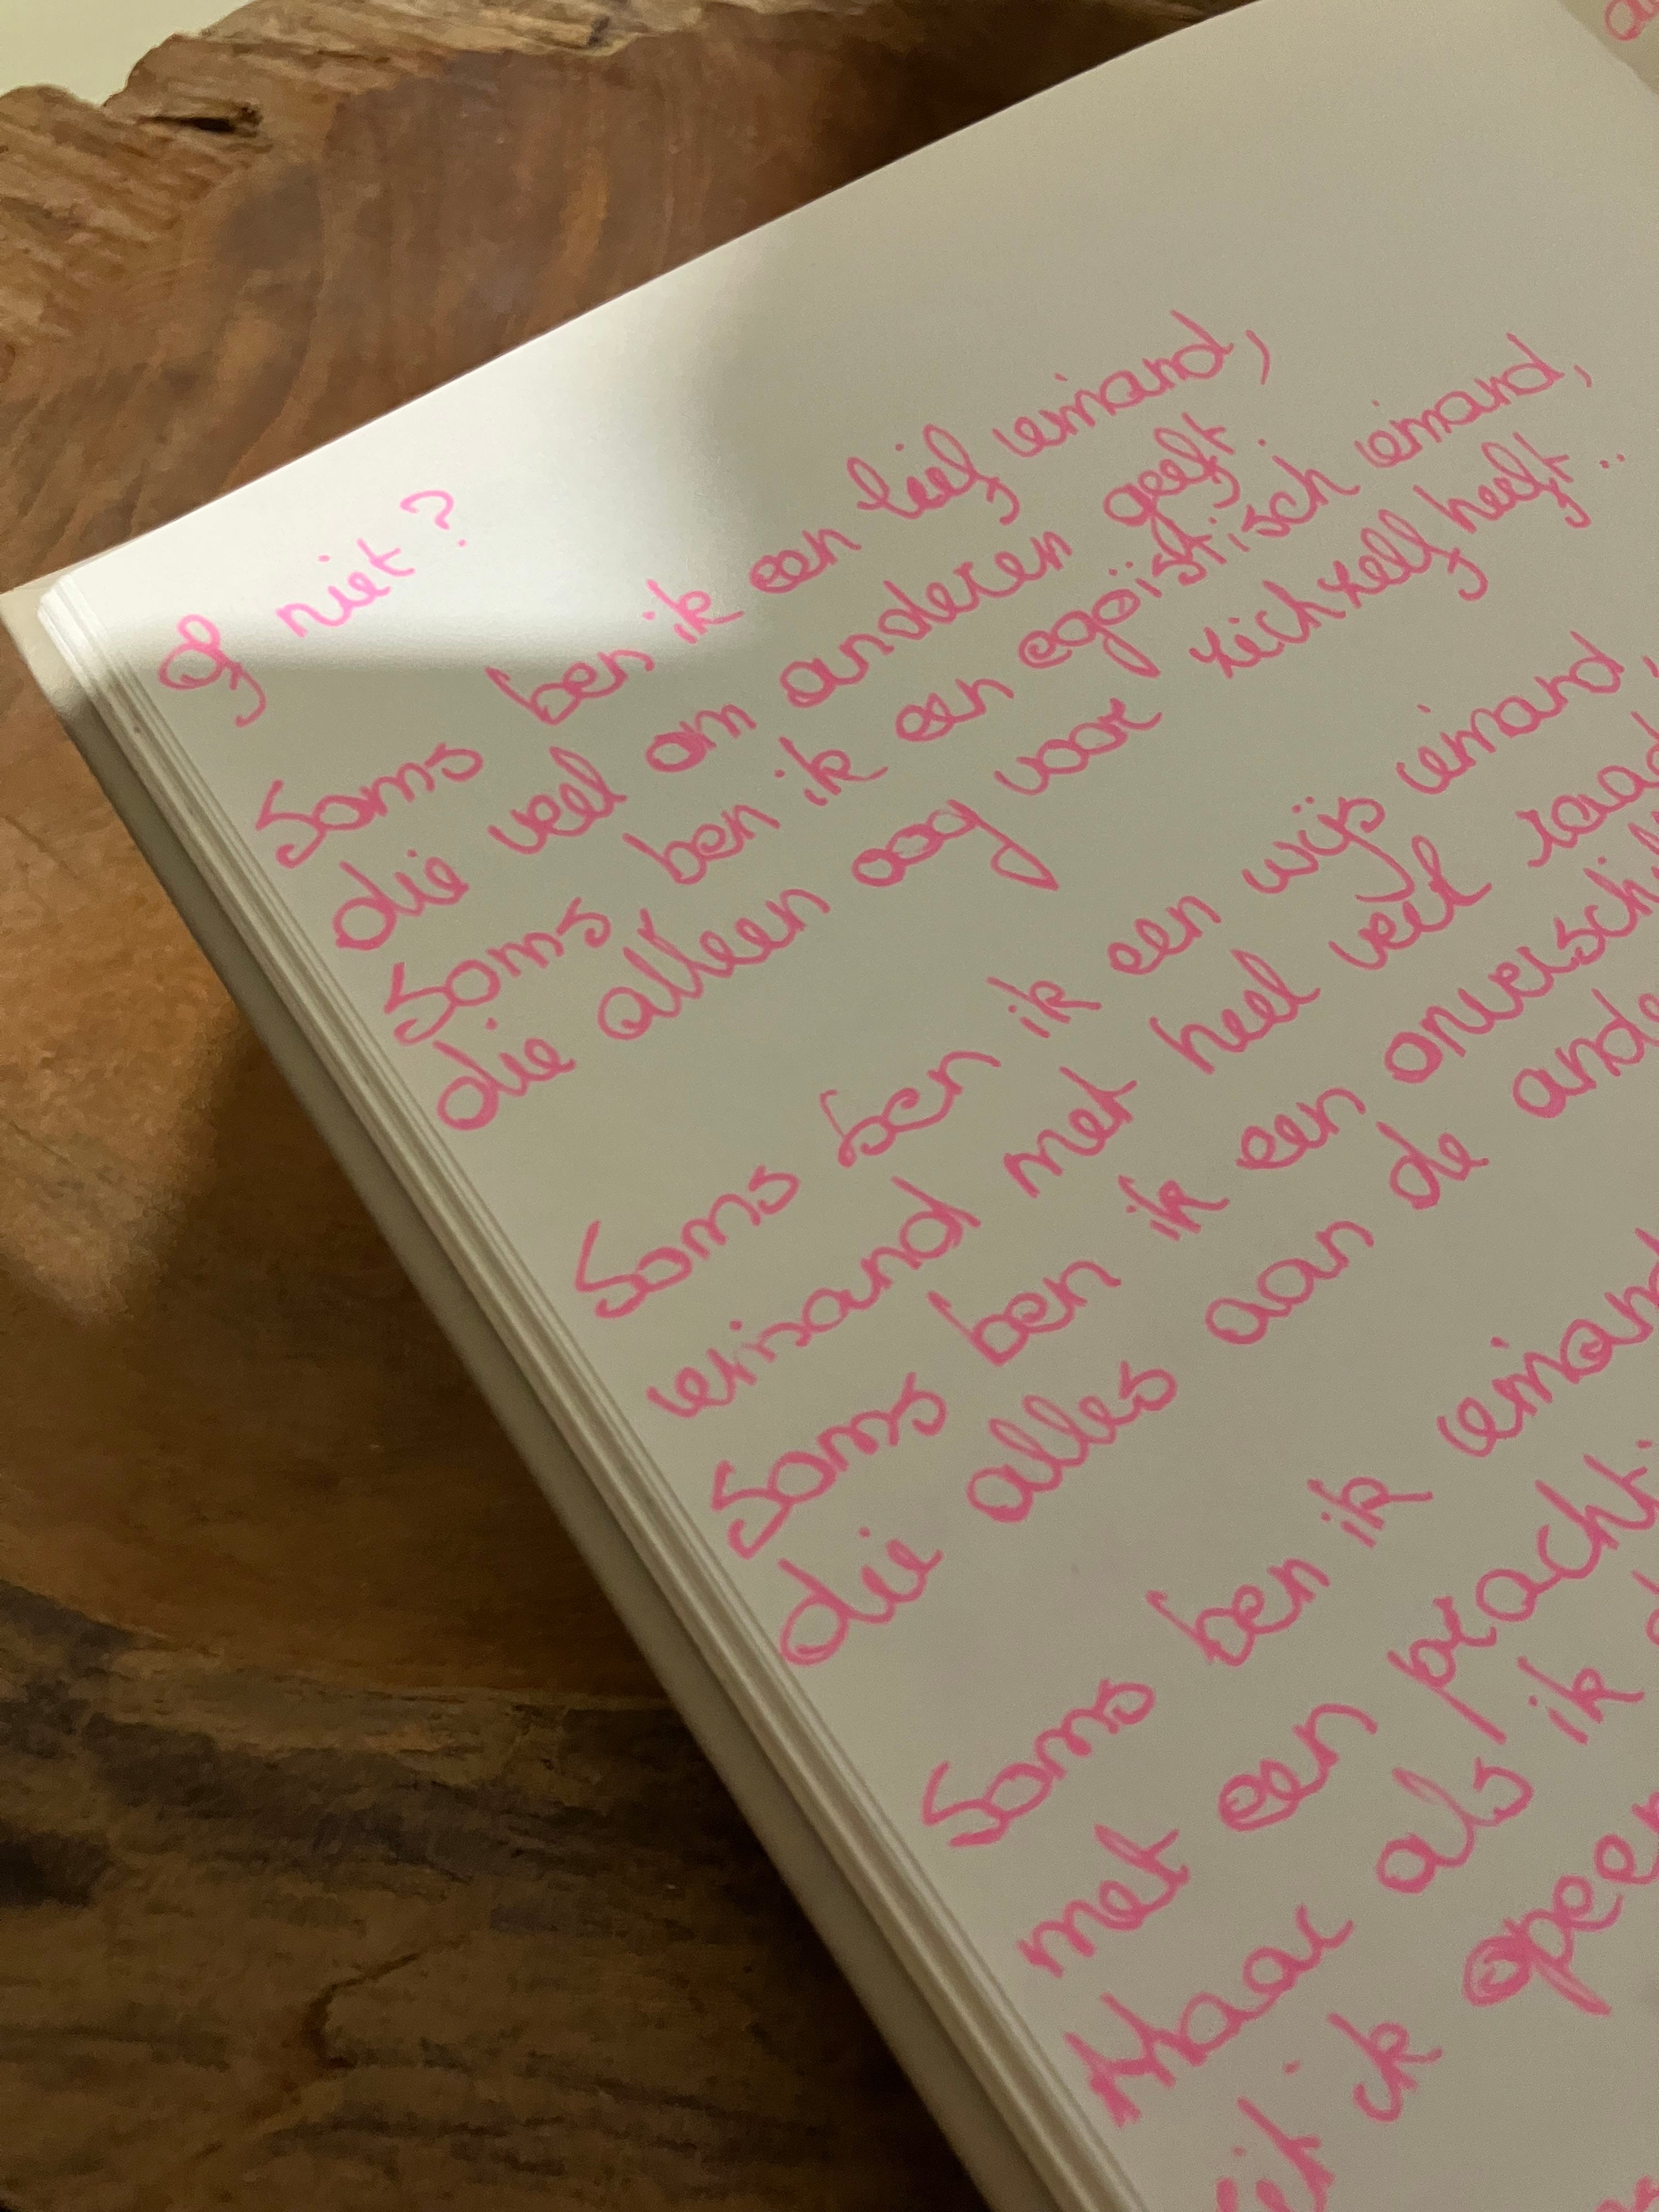 Of niet?
Soms ben ik een lief iemand,
die veel om anderen geeft.
Soms ben ik een egoïstisch iemand,
die alleen oog voor zichzelf heeft..
Soms ben ik een wijs iemand,
iemand met heel veel raad
Soms ben ik een onversch
die alles aan de ande
Soms ben ik iemand
met een prachti
Maar als ik
ik open